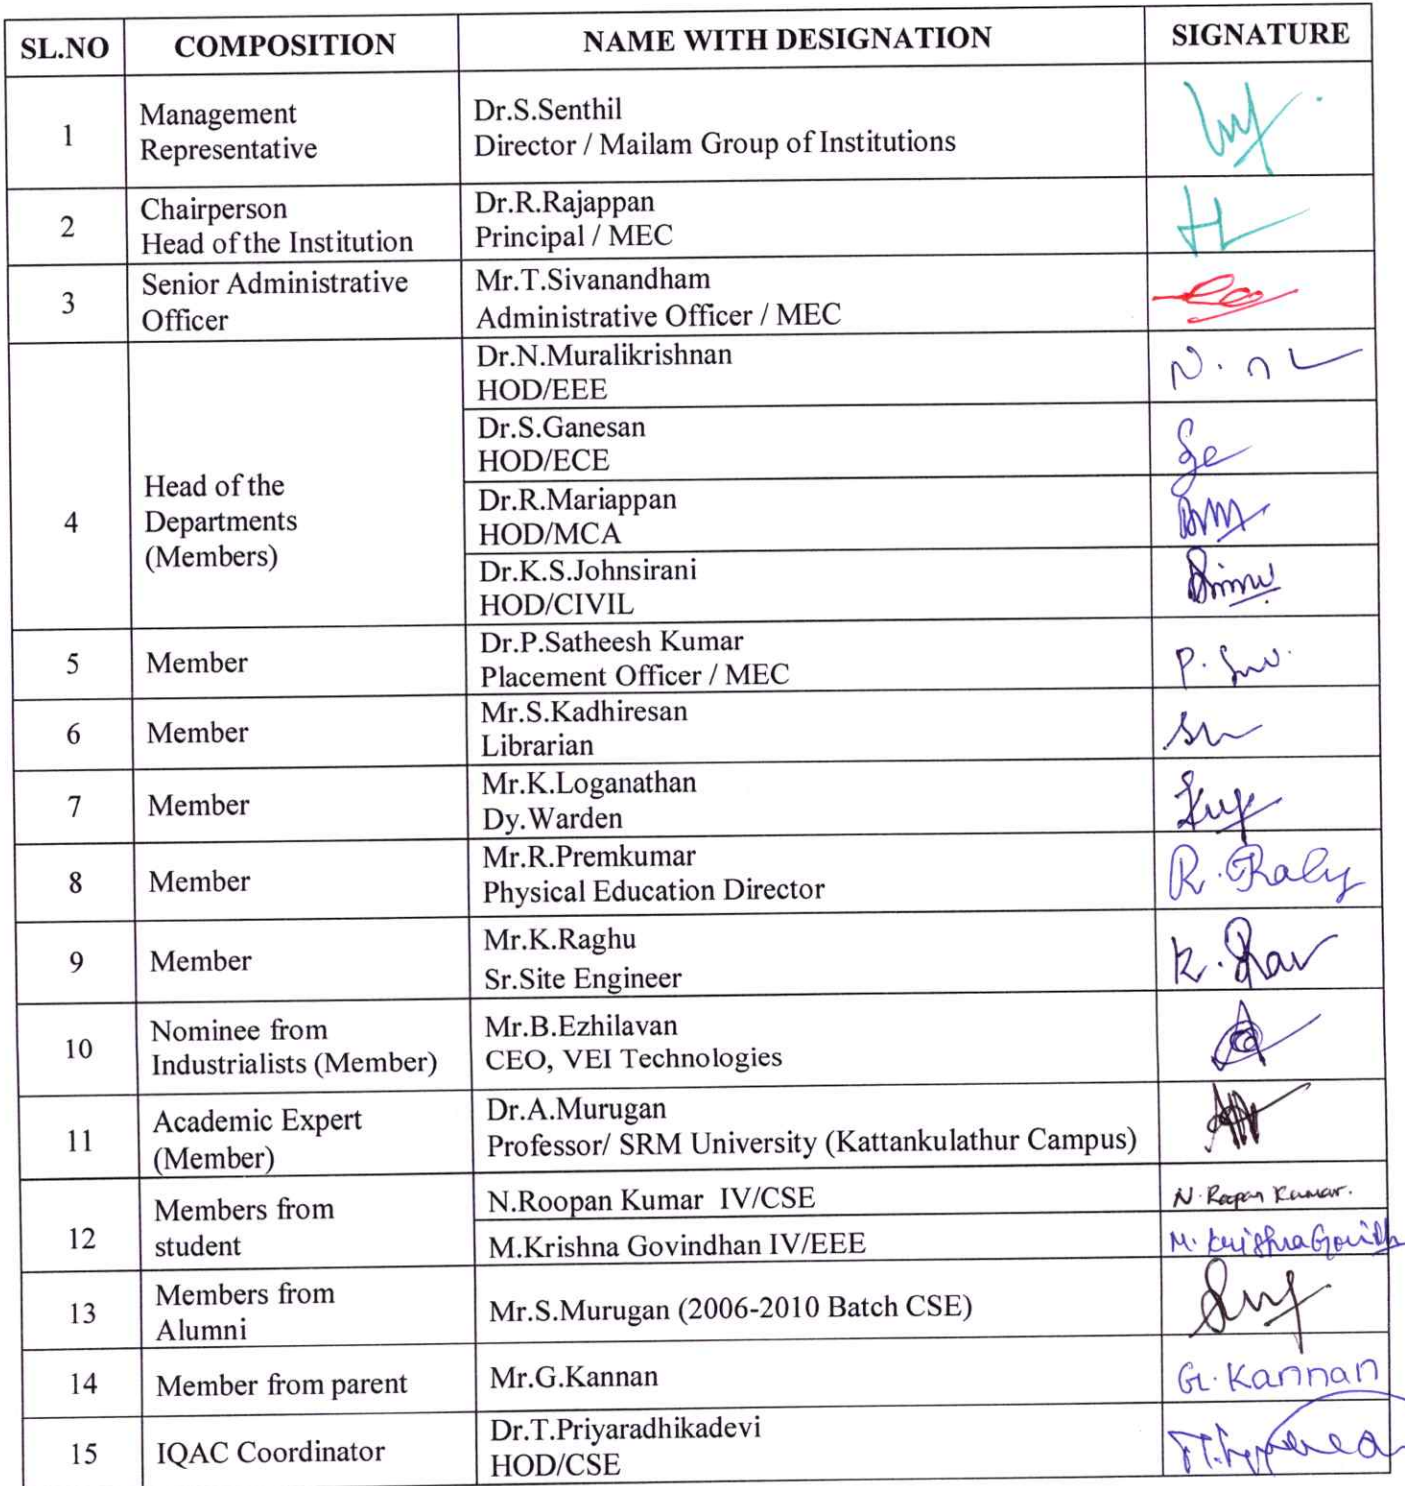 SL.NO COMPOSITION NAME WITH DESIGNATION SIGNATURE
1
Management
Representative
Dr.S.Senthil
Director / Mailam Group of Institutions
2
Chairperson
Head of the Institution
Dr.R.Rajappan
Principal / MEC
3
Senior Administrative
Officer
Mr.T.Sivanandham
Administrative Officer / MEC
4
Head of the
Departments
(Members)
Dr.N.Muralikrishnan
HOD/EEE
Dr.S.Ganesan
HOD/ECE
Dr.R.Mariappan
HOD/MCA
Dr.K.S.Johnsirani
HOD/CIVIL
5
Member
Dr.P.Satheesh Kumar
Placement Officer / MEC
6
Member
Mr.S.Kadhiresan
Librarian
7
Member
Mr.K.Loganathan
Dy.Warden
8
Member
Mr.R.Premkumar
Physical Education Director
9
Member
Mr.K.Raghu
Sr.Site Engineer
10
Nominee from
Industrialists (Member)
Mr.B.Ezhilavan
CEO, VEI Technologies
11
Academic Expert
(Member)
Dr.A.Murugan
Professor/ SRM University (Kattankulathur Campus)
12
Members from
student
N.Roopan Kumar IV/CSE
N. Roopan Kumar.
M.Krishna Govindhan IV/EEE
13
Members from
Alumni
Mr.S.Murugan (2006-2010 Batch CSE)
14
Member from parent
Mr.G.Kannan
G. Kannan
15
IQAC Coordinator
Dr.T.Priyaradhikadevi
HOD/CSE